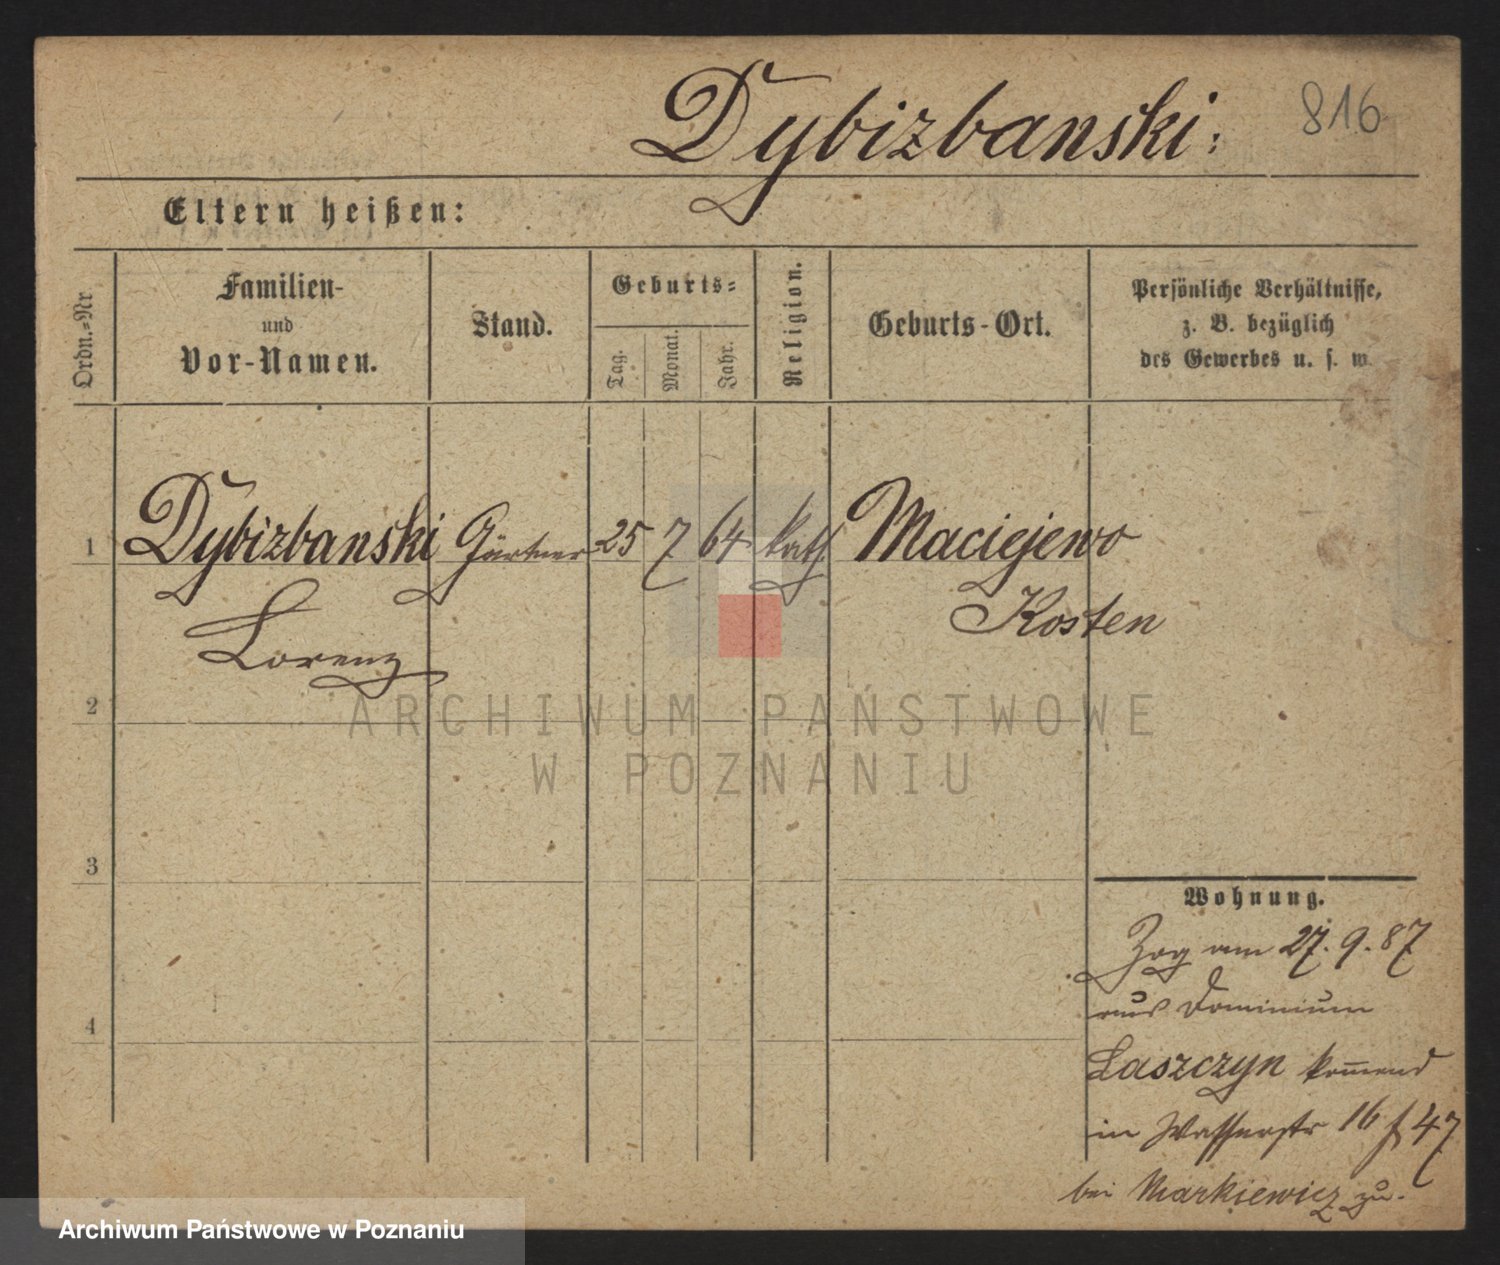 Dybizbanski:
816
Eltern heißen:
Ordn.=Nr
Familien-
und
Vor-Namen.
Stand.
Geburts=
Tag.
Monat.
Jahr.
Religion.
Geburts-Ort.
Persönliche Verhältnisse,
z. B. bezüglich
des Gewerbes u. s. w.
1
Dybizbanski
Gärtner
25
7
64
kath
Maciejewo
Lorenz
Kosten
2
ARCHIWUM PAŃSTWOWE
W POZNANIU
3
Wohnung.
Zog am 27. 9. 87
aus Dominium
4
Laszczyn kom̅end
in Wasserstr 16 47
bei Markiewicz zu.
Archiwum Państwowe w Poznaniu